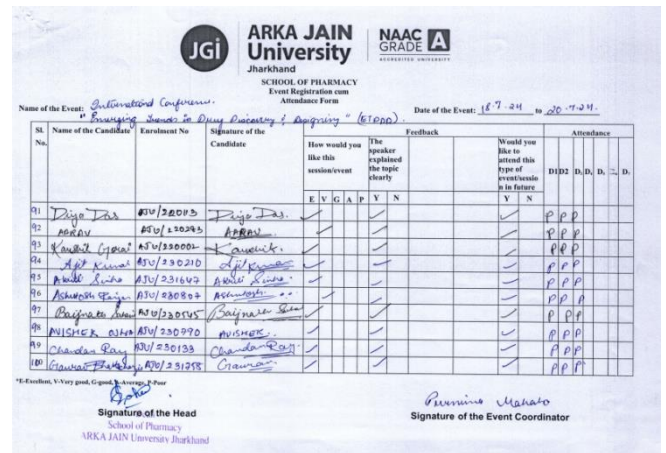 JGI
ARKA JAIN
University
Jharkhand
NAAC
GRADE A
ACCREDITED UNIVERSITY
SCHOOL OF PHARMACY
Event Registration cum
Attendance Form
Name of the Event: International Conference.
"Emerging Trends in Drug Discovery & Designing" (ETDDD).
Date of the Event: 18-7-24 to 20-7-24.
Sl. No. Name of the Candidate Enrolment No Signature of the Candidate Feedback Attendance
How would you like this session/event The speaker explained the topic clearly Would you like to attend this type of event/session in future D1 D2 D, D, D, D,
E V G A P Y N Y N
91 Diya Das AJU/220113 Diya Das. P P P
92 AARAV AJU/220293 AARAV P P P
93 Kaushik Gorai AJU/220002 Kaushik. P P P
94 Ajit Kumar AJU/230210 Ajit Kumar P P P
95 Sinha AJU/231647 Sinha P P P
96 Ashutosh AJU/230807 Ashutosh P P P
97 Baijnath AJU/230545 Baijnath P P P
98 AVISHEK OJHA AJU/230790 AVISHEK. P P P
99 Chandan Ray AJU/230133 Chandan Ray. P P P
100 Gaurav AJU/231258 Gaurav P P P
*E-Excellent, V-Very good, G-good, A-Average, P-Poor
Signature of the Head
School of Pharmacy
ARKA JAIN University Jharkhand
Mahato
Signature of the Event Coordinator